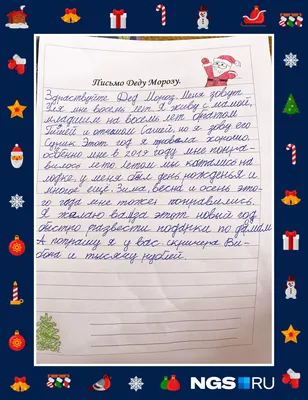 Письмо Деду Морозу.
Здраствуйте Дед Мороз. Меня зовут
мне восемь лет. Я живу с мамой,
младшим на восемь лет братом
и отчимом Сашей, но я зову его
Этот год я провела хорошо.
особенно мне в 2019 году мне понра-
вилось лето. Летом мы катались на
лодке, у меня был день нождения и
многое ещё. Зима, весна и осень это-
го года мне тоже понравились.
Я желаю вам в этот новый год
быстро развести подарки по домам.
А попрошу я у вас скринера Ви-
бона и тысячу рублей.
NGS RU